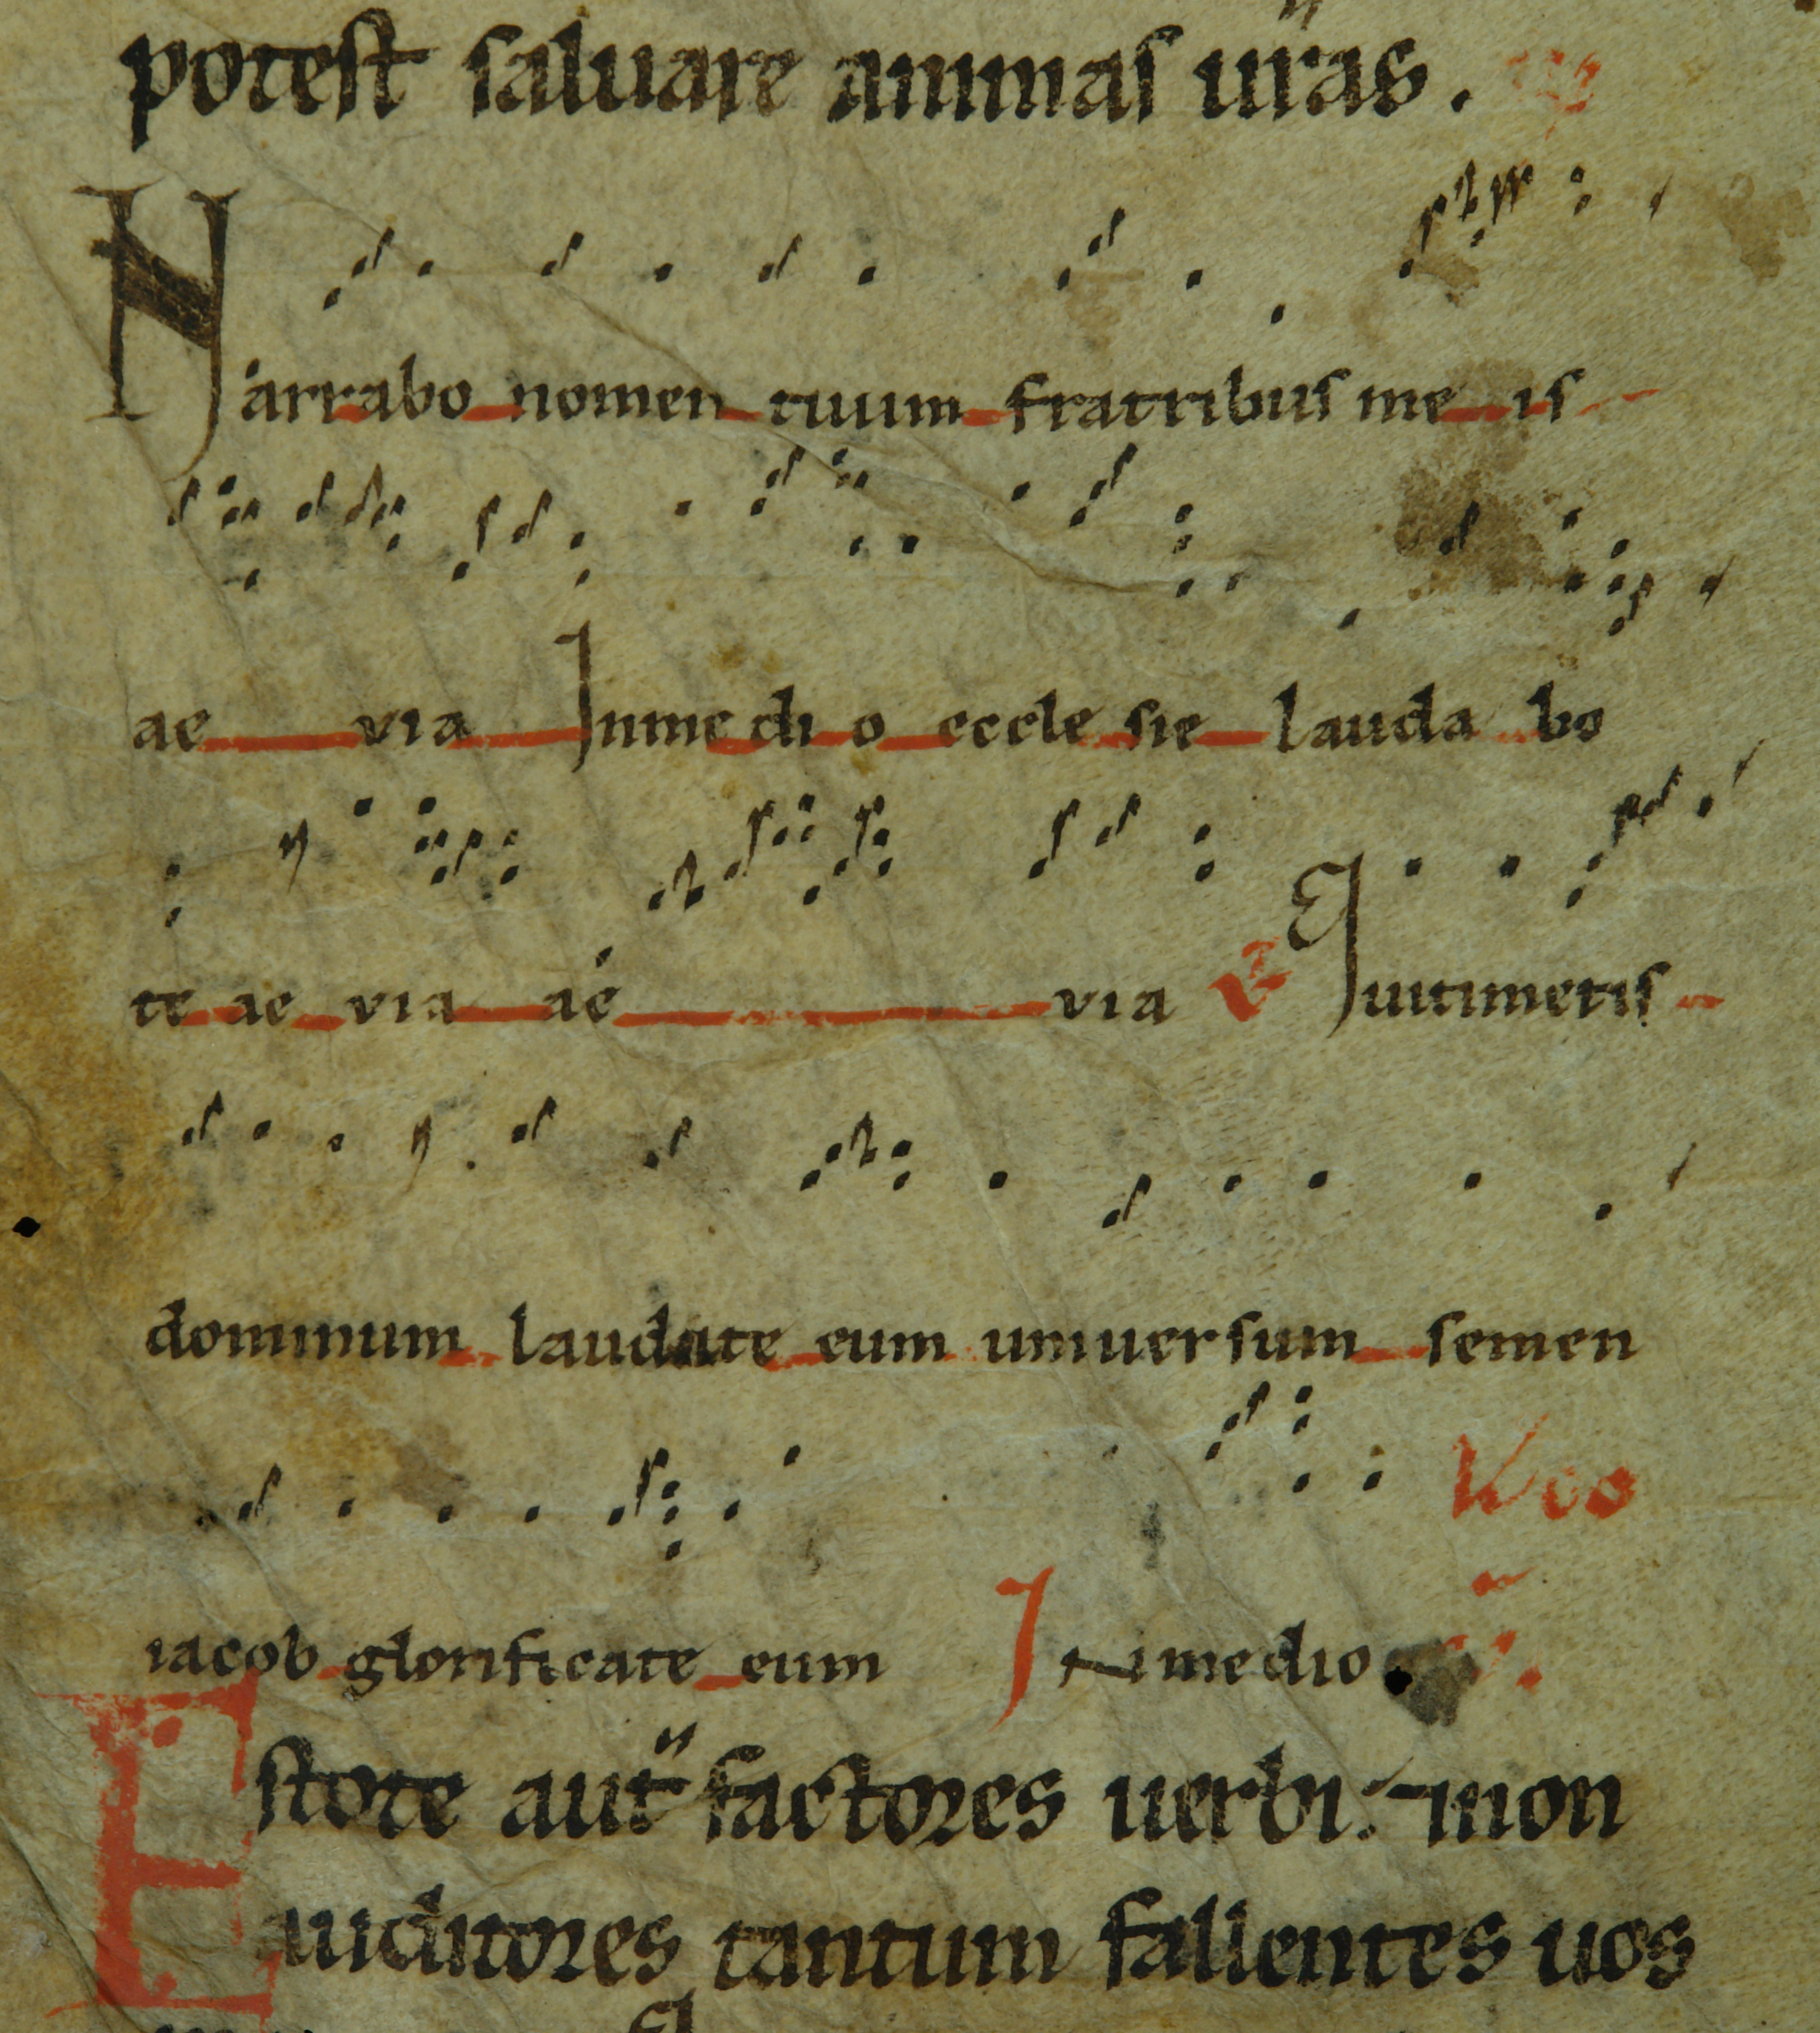 potest saluare animas uras.
Narrabo nomen tuum fratribus me is
ae via Inme di o eccle sie lauda bo
te ae via ae via Quitimetis
dominum laudate eum uniuersum semen
iacob glorificate eum In medio
Estote aut factores uerbi: 7 non
auditores tantum fallentes uos